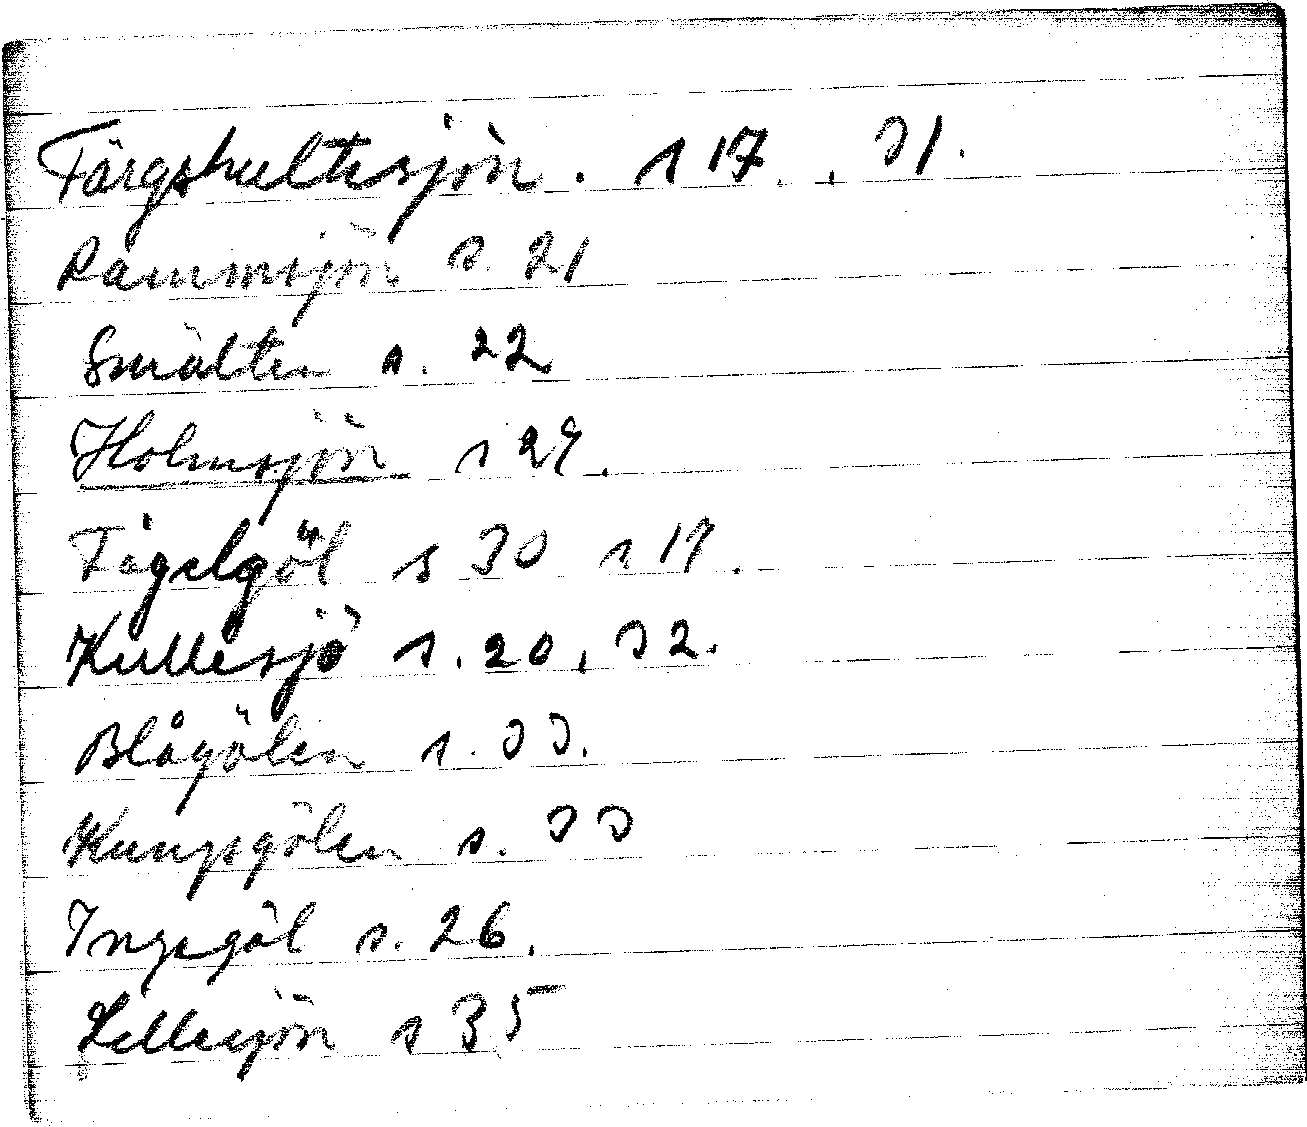 Färgshultesjön. s 17., 31.
Rammsjön s. 21
Smälten s. 22
Holmsjön s 29.
Fågelgöl s 30 s 17.
Kullesjö s. 20, 32.
Blågölen s. 33.
Kungsgölen s. 33
Ingsgöl s. 26.
Lillesjön s 35